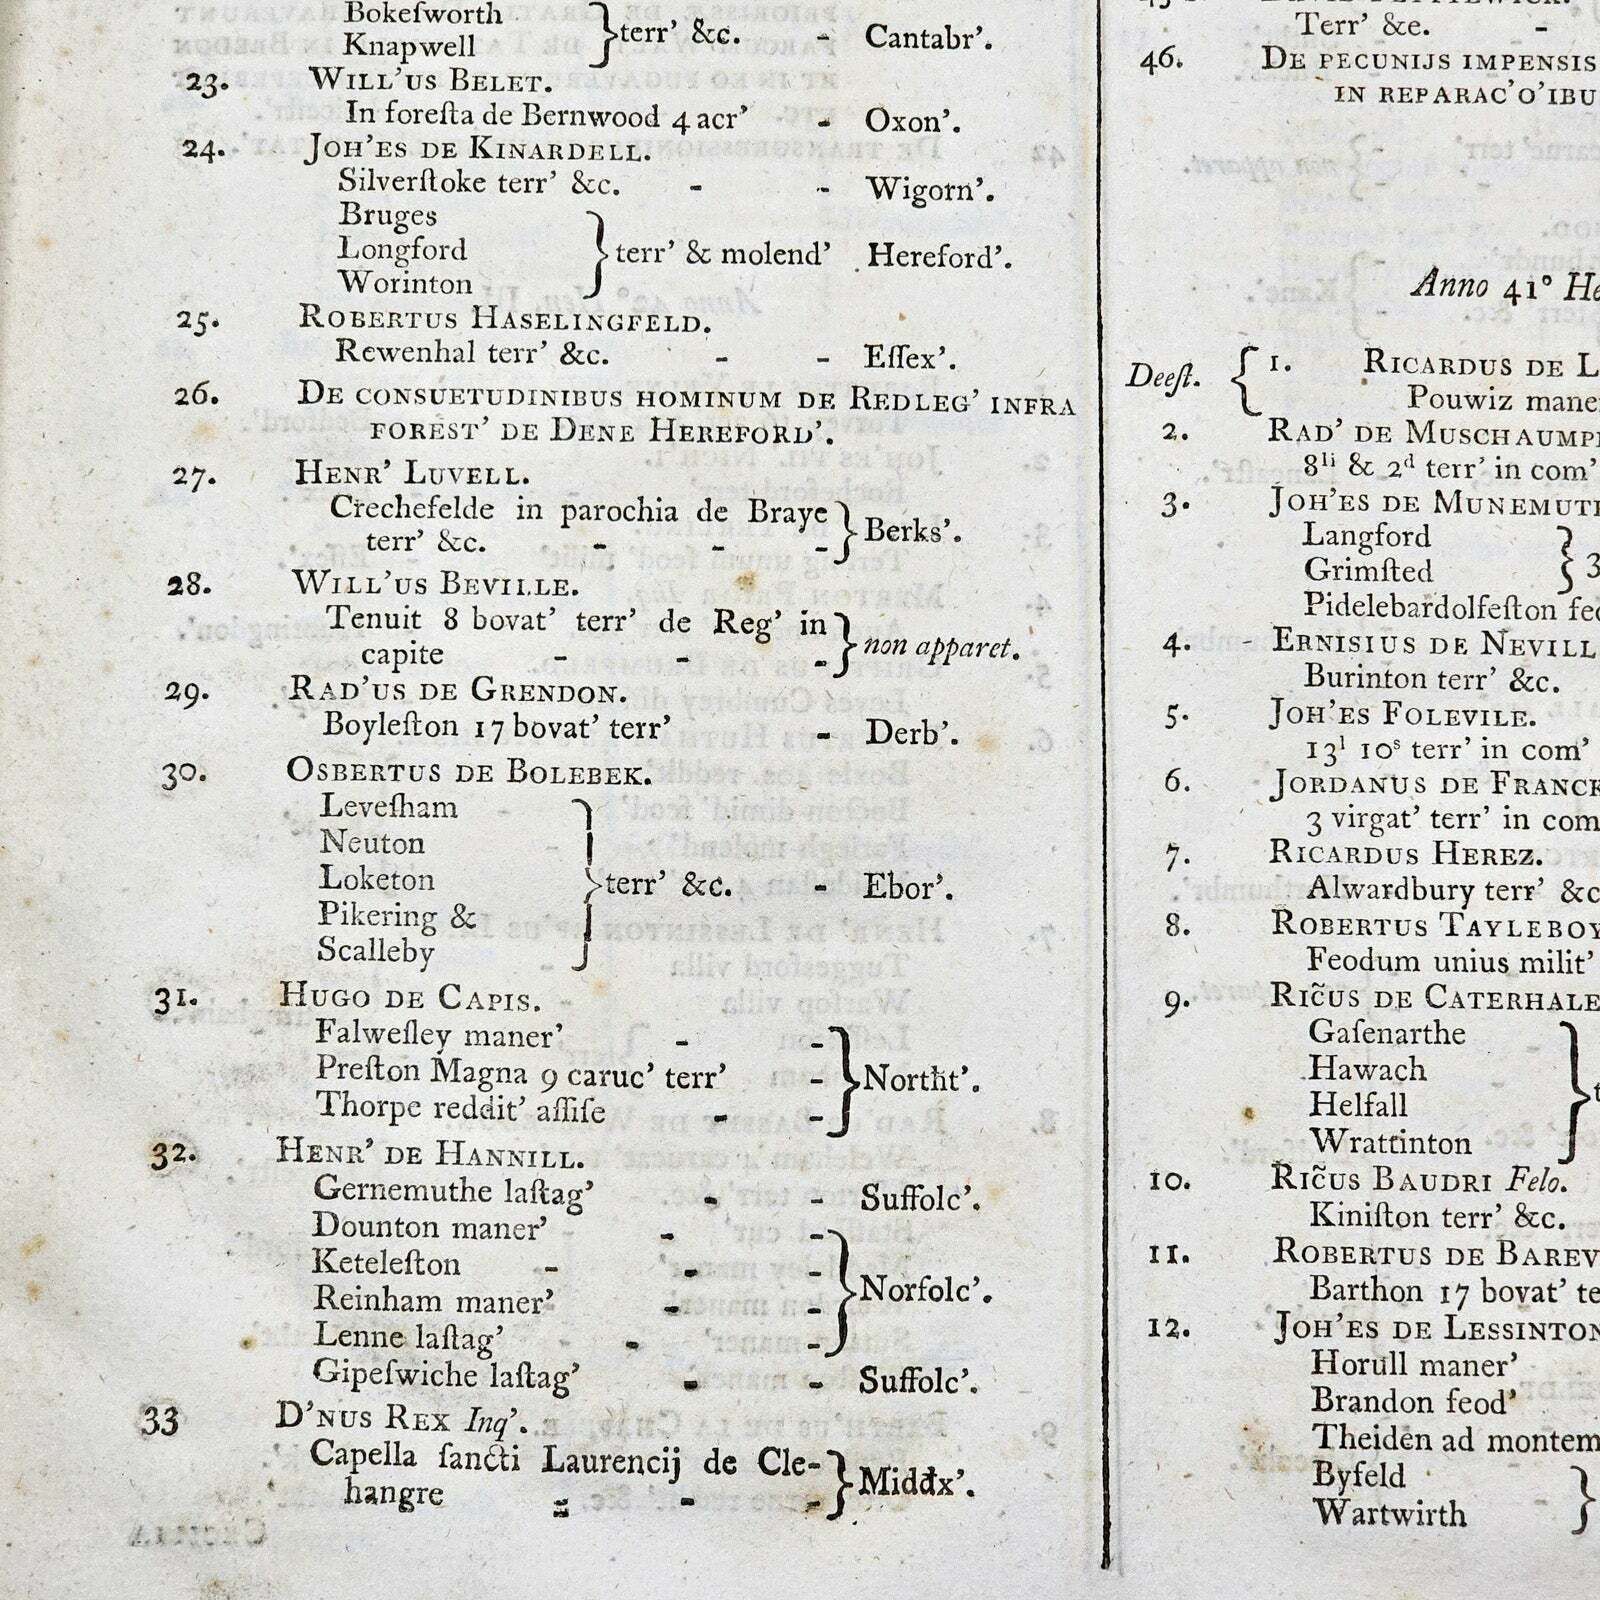 Bokeſworth
Knapwell
terr' &c. - Cantabr'.
23. WILL'US BELET.
In foreſta de Bernwood 4 acr' - Oxon'.
24. JOH'ES DE KINARDELL.
Silverſtoke terr' &c. - - Wigorn'.
Bruges
Longford
Worinton
terr' & molend' Hereford'.
25. ROBERTUS HASELINGFELD.
Rewenhal terr' &c. - - Eſſex'.
26. DE CONSUETUDINIBUS HOMINUM DE REDLEG' INFRA
FOREST' DE DENE HEREFORD'.
27. HENR' LUVELL.
Crechefelde in parochia de Braye
terr' &c. - - -
Berks'.
28. WILL'US BEVILLE.
Tenuit 8 bovat' terr' de Reg' in
capite - - -
non apparet.
29. RAD'US DE GRENDON.
Boyleſton 17 bovat' terr' - Derb'.
30. OSBERTUS DE BOLEBEK.
Leveſham
Neuton
Loketon
Pikering &
Scalleby
terr' &c. - Ebor'.
31. HUGO DE CAPIS.
Falweſley maner' - -
Preſton Magna 9 caruc' terr' -
Thorpe reddit' aſſiſe - -
Northt'.
32. HENR' DE HANNILL.
Gernemuthe laſtag' - - Suffolc'.
Dounton maner' - -
Keteleſton - - -
Reinham maner' - -
Lenne laſtag' - -
Norfolc'.
Gipeſwiche laſtag' - - Suffolc'.
33 D'NUS REX Inq'.
Capella ſancti Laurencij de Cle-
hangre - - -
Middx'.
Terr' &c. -
46. DE PECUNIJS IMPENSIS
IN REPARAC'O'IBU
Anno 41° He
Deeſt. 1. RICARDUS DE L
Pouwiz mane
2. RAD' DE MUSCHAUMP
8li & 2d terr' in com'
3. JOH'ES DE MUNEMUT
Langford
Grimſted
3
Pidelebardolfeſton feo
4. ERNISIUS DE NEVILL
Burinton terr' &c.
5. JOH'ES FOLEVILE.
13l 10s terr' in com'
6. JORDANUS DE FRANCK
3 virgat' terr' in com
7. RICARDUS HEREZ.
Alwardbury terr' &c
8. ROBERTUS TAYLEBOY
Feodum unius milit'
9. RIC̃US DE CATERHALE
Gaſenarthe
Hawach
Helfall
Wrattinton
t
10. RIC̃US BAUDRI Felo.
Kiniſton terr' &c.
11. ROBERTUS DE BAREV
Barthon 17 bovat' te
12. JOH'ES DE LESSINTON
Horull maner'
Brandon feod'
Theiden ad montem
Byfeld
Wartwirth